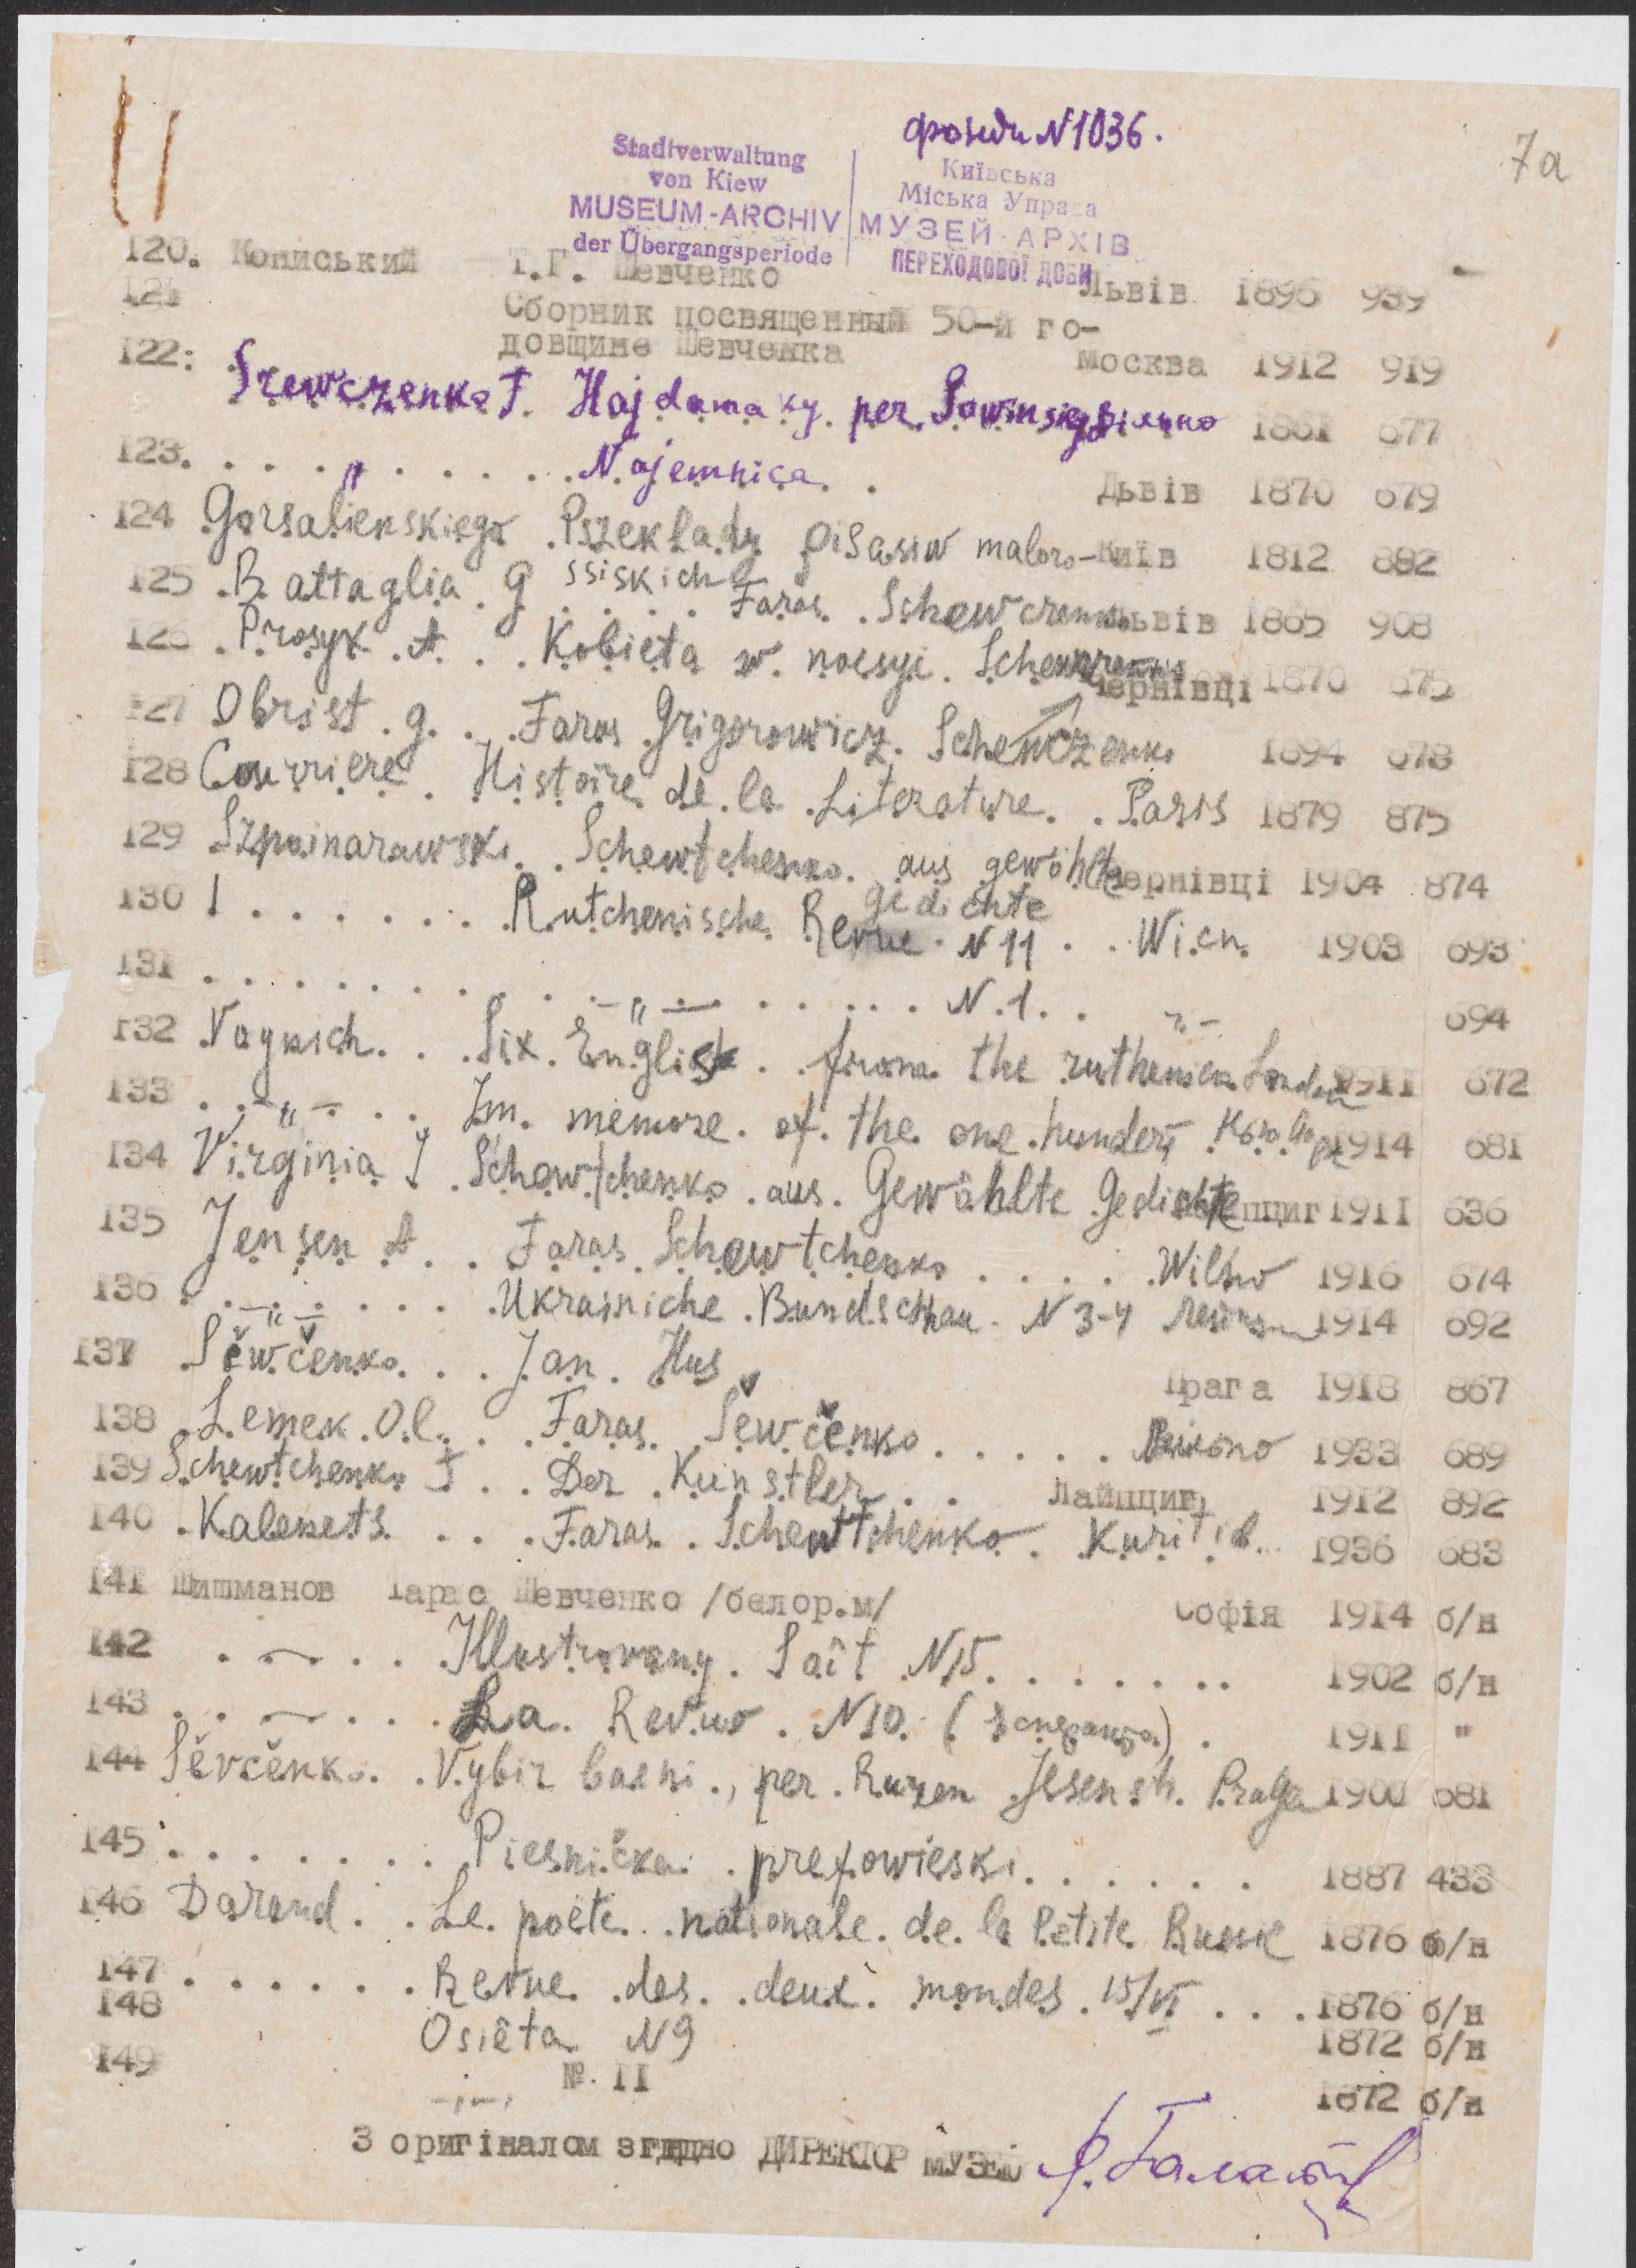 фонди N 1036.
7а
Stadtverwaltung
von Kiew
MUSEUM-ARCHIV
der Übergangsperiode
Київська
Міська Управа
МУЗЕЙ-АРХІВ
ПЕРЕХОДОВОЇ ДОБИ
120. Кониський Т.Г. Шевченко Львів 1896 939
121 Сборник посвященный 50-й го-
довщине Шевченка Москва 1912 919
122: Szewczenko T. Hajdamaky per. Sowinsky Вільно 1861 677
123. . . . " . . . . Najemnica. . Львів 1870 679
124 Gorsalienskiego Pszeklady pisasiw maloro- Київ 1812 892
ssiskich
125 Battaglia. G . . . . Taras. Schewczenko Львів 1865 908
126 Prosyk. A. . . Kobieta w. poesyi. Чернівці 1870 675
127 Obrist. g. . . Taras Grigorowicz. Schewczenko 1894 678
128 Courriere. Histoire de. la. Literature. . Paris 1879 875
129 Szpoinarawski. . Schewtchenko. aus gewählte Чернівці 1904 874
gedichte
130 1 . . . . . . Rutchenische. Revue. N 11 . . Wien. 1903 693
131 . . . . . . . . . — " — . . . . . N. 1. . - " - 694
132 Voynich. . . Six. English . . from. the ruthenien London 1911 672
133 . . - " - . . Im. memore. of. the. one. hundert 1914 681
134 Virginia J. Schewtchenko. aus. Gewählte Gedichte Лейпциг 1911 636
135 Jensen A. . . Taras. Schewtchenko . . . . Wilno 1916 674
136 . . - " - . . . . Ukrainiche. Bundschau. N 3-4 1914 692
137 Šewčenko. . . Jan. Hus Прага 1918 867
138 Lemek. Ol. . . Taras. Šewčenko . . . . . 1933 689
139 Schewtchenko T . . Der. Kunstler. . . Лайпциг, 1912 892
140 . Kalenets. . . . Taras. Schewtchenko. Kuritib. . 1936 683
141 Шишманов Тарас Шевченко /белор.м/ Софія 1914 б/н
142 . . . . Illustrovany. Sait N 15. . . . . . . . 1902 б/н
143 . . . . . La. Revuo. N 10. (Эсперанто). . 1911 "
144 Ševčenko. . Vybir basni., per. Ruzen Jesensk. Praga 1900 681
145 . . . . . . . . Piesnička. . prepowieski. . . . . . 1887 433
146 Darand. . . Le. poete. . nationale. de. la Petite Russie 1876 б/н
147 . . . . . . Revue. des. . deux. mondes. 15/VI . . . 1876 б/н
148 Osiêta N 9 1872 б/н
149 № 11 1872 б/н
З оригіналом згідно ДИРЕКТОР МУЗЕЮ